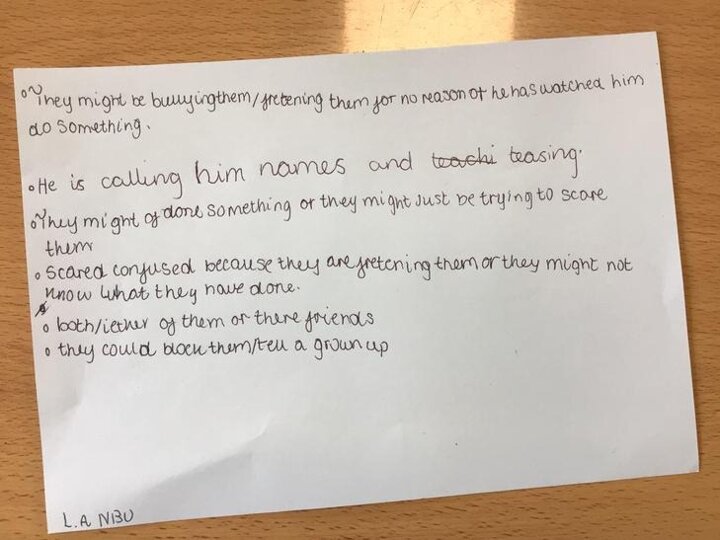 They might be bullyingthem/fretening them for no reason or he has watched him
do something.
He is calling him names and teachi teasing.
They might of done something or they might Just be trying to scare
them
scared confused because they are fretening them or they might not
know what they have done.
both/iether of them or there friends
they could block them/tell a grown up
L.A NBU